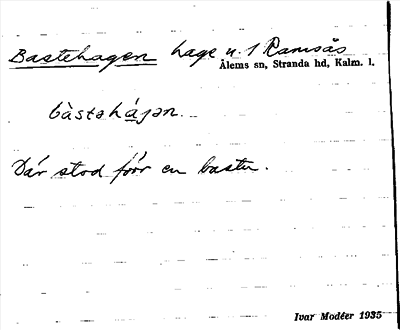 Bastehagen hage u. 1 Ramsås
Ålems sn, Stranda hd, Kalm. l.
bàstəhá̱jən.
Där stod förr en bastu.
Ivar Modéer 1935